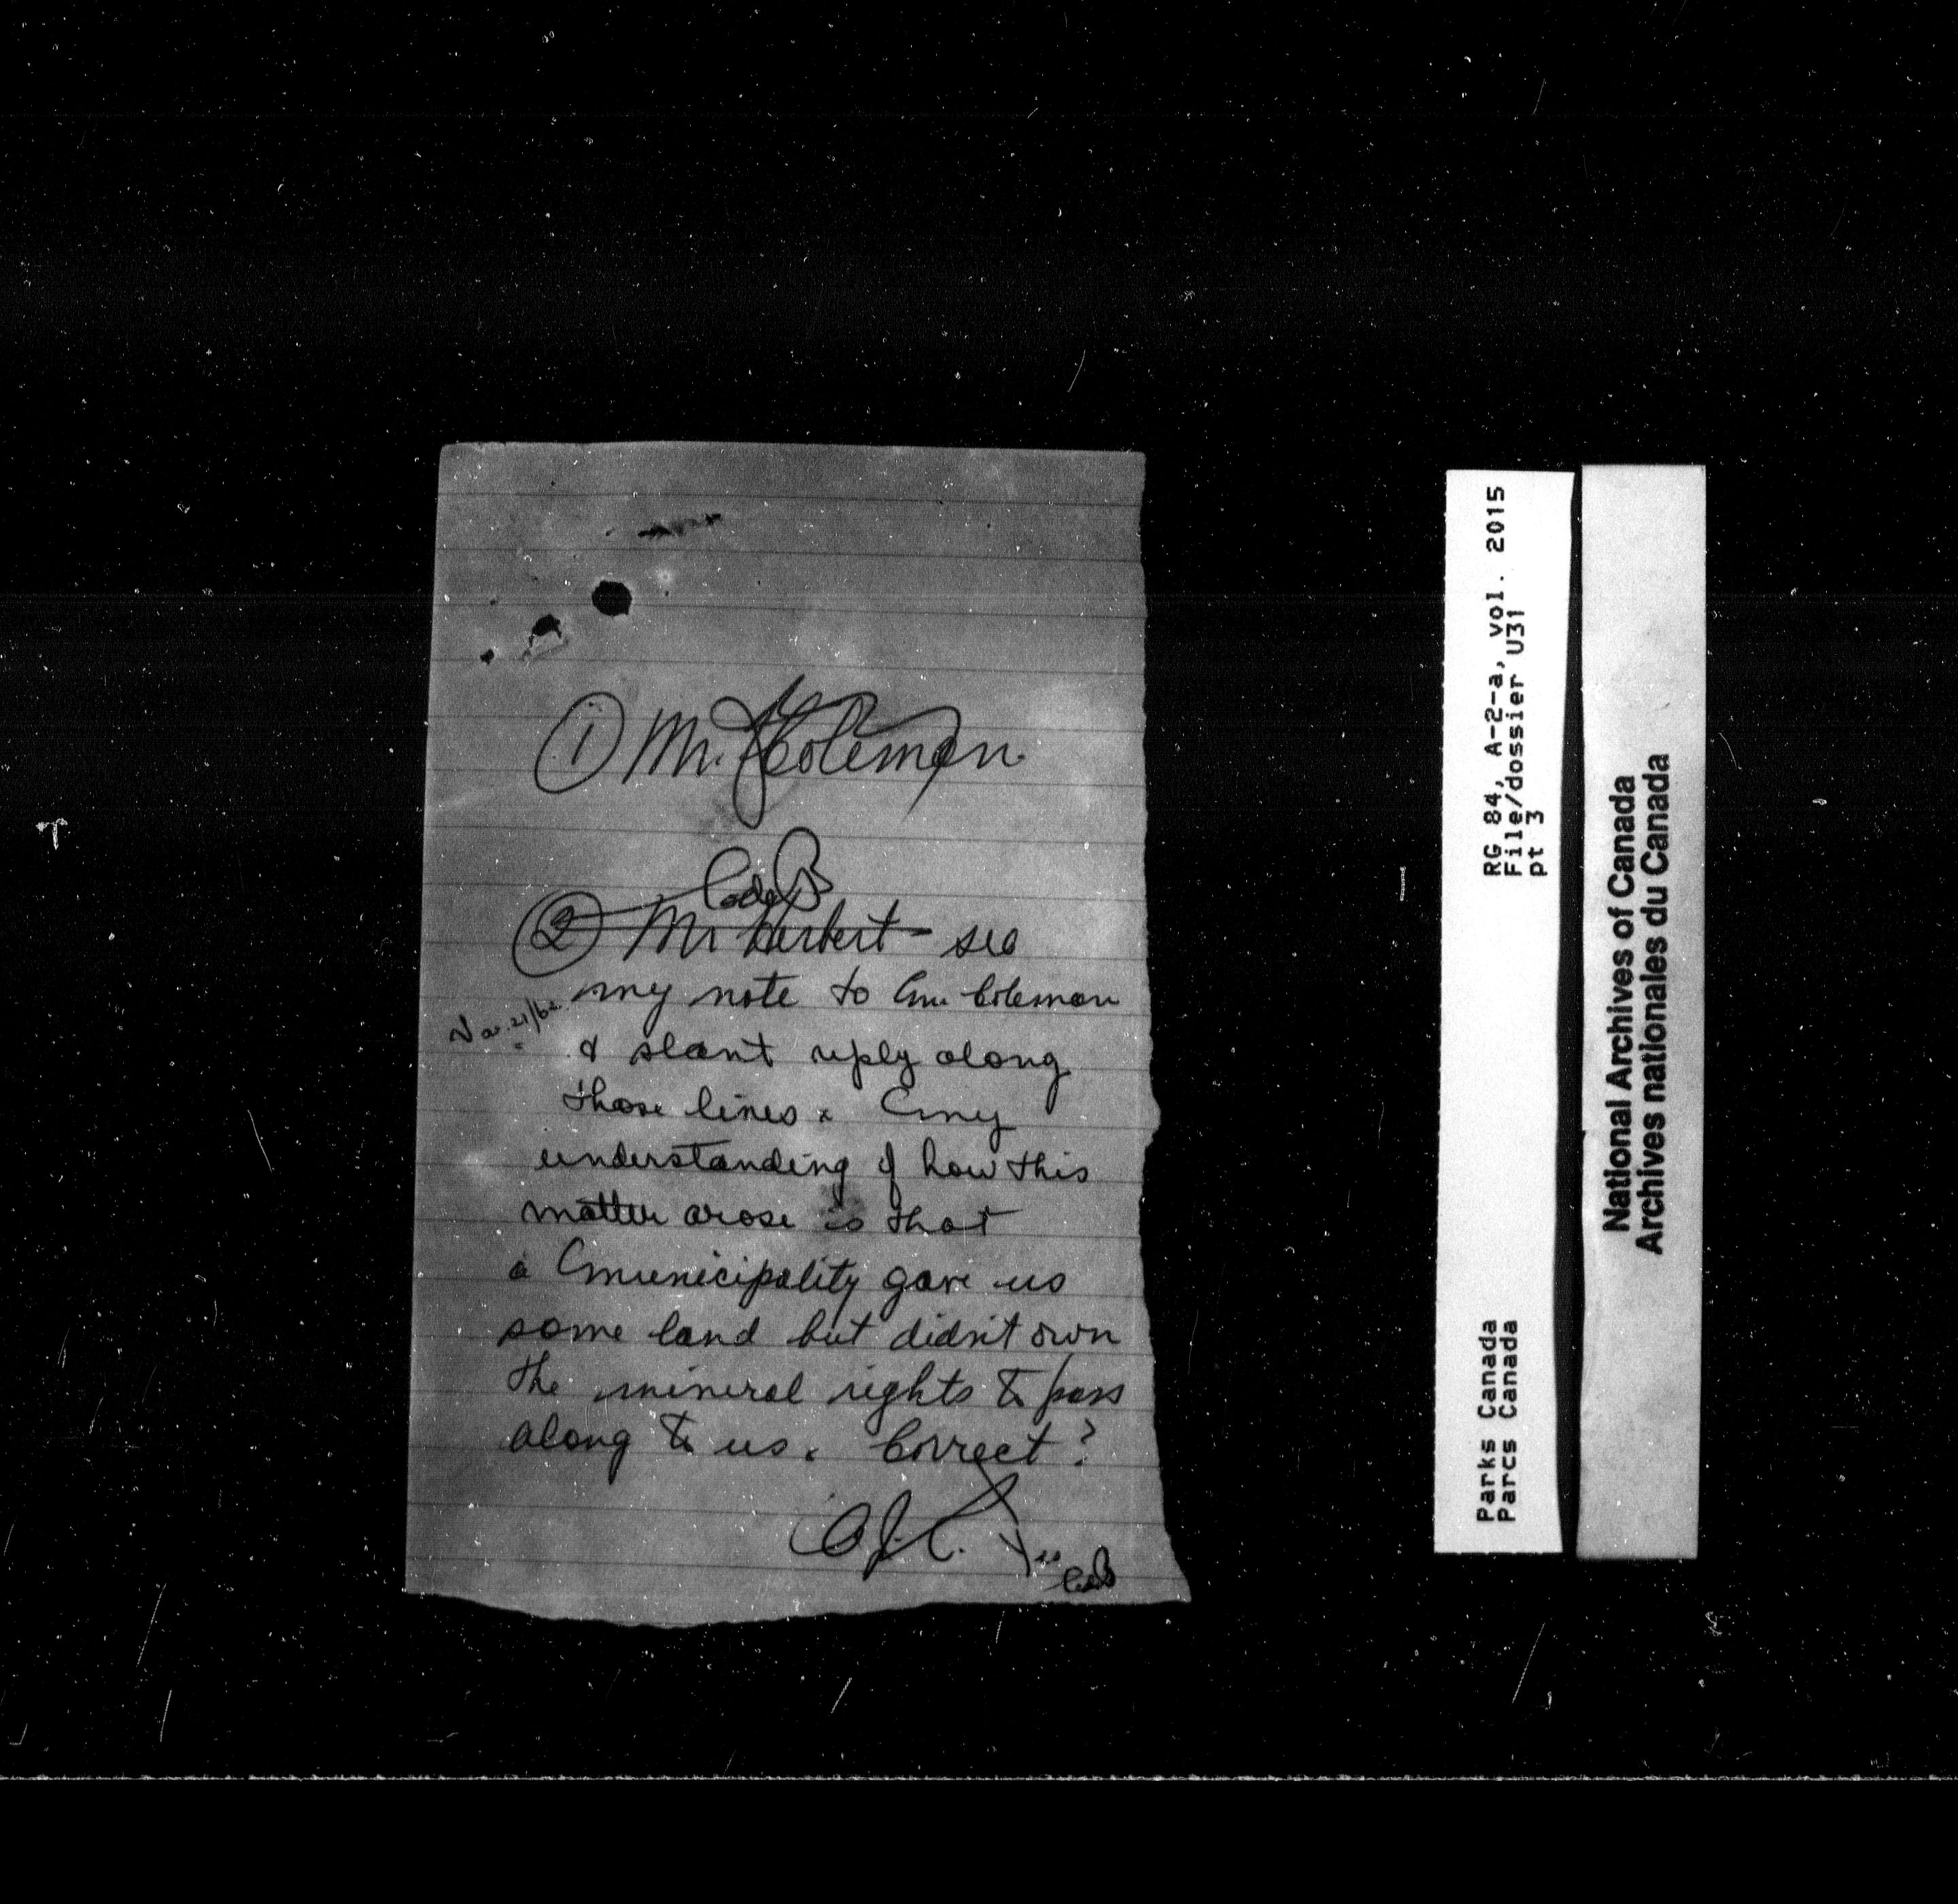 ① Mr. Coleman
② Mr Herbert - see
my note to Mr. Coleman
& slant reply along
those lines. My
understanding of how this
matter arose is that
a Municipality gave us
some land but didn't own
the mineral rights to pass
along to us. Correct?
Yes
RG 84, A-2-a, vol. 2015
File/dossier U31
pt 3
Parks Canada
Parcs Canada
National Archives of Canada
Archives nationales du Canada